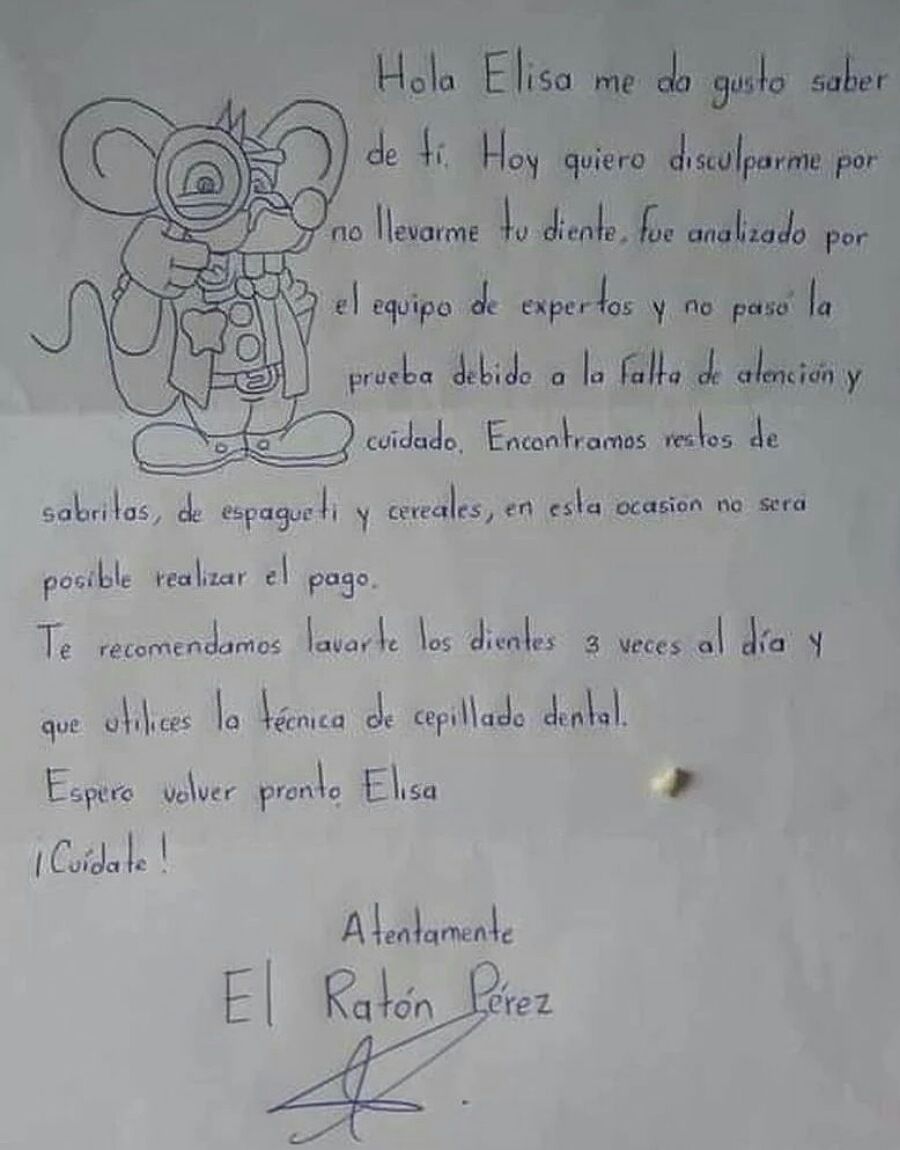 Hola Elisa me da gusto saber
de ti. Hoy quiero disculparme por
no llevarme tu diente, fue analizado por
el equipo de expertos y no pasó la
prueba debido a la falta de atención y
cuidado. Encontramos restos de
sabritas, de espagueti y cereales, en esta ocasion no sera
posible realizar el pago.
Te recomendamos lavarte los dientes 3 veces al día y
que utilices la técnica de cepillado dental.
Espero volver pronto Elisa
¡Cuídate!
Atentamente
El Ratón Pérez